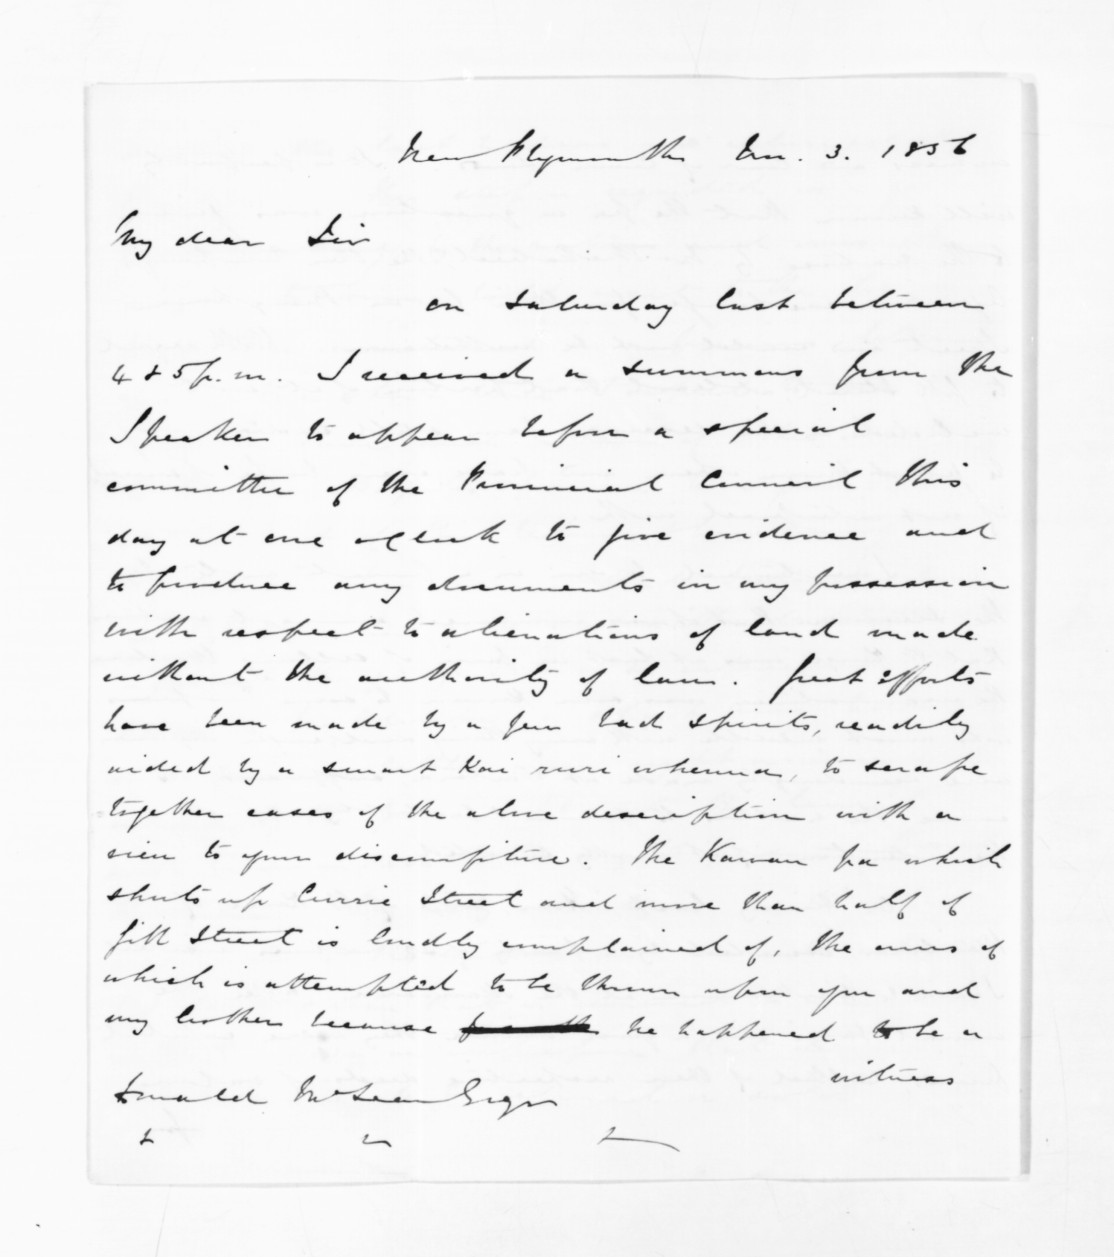 New Plymouth Nov. 3. 1856
My dear Sir
on Saturday last between
4 & 5 p.m. I received a summons from the
Speaker to appear before a special
committee of the Provincial Council this
day at one oClock to give evidence and
to produce any documents in my possession
with respect to alienations of land made
without the authority of law. Great efforts
have been made by a few bad spirits, readily
aided by a smart Kai ruri whenua, to scrape
together cases of the above description with a
view to your discomfiture. The Kawau pa which
shuts up Currie Street and more than half of
Gill Street is loudly complained of, the onus of
which is attempted to be thrown upon you and
my brother because he happened to be a
witness
Donald McLean Esqr